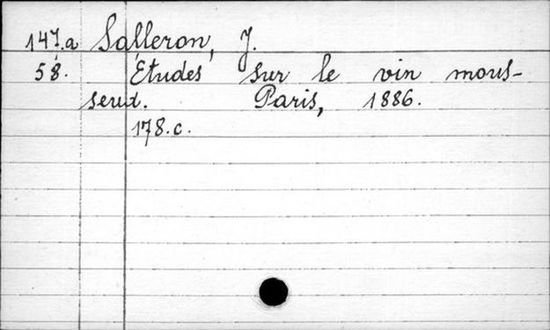 147.a Salleron, J.
58. Études sur le vin mous-
seux. Paris, 1886.
178.c.